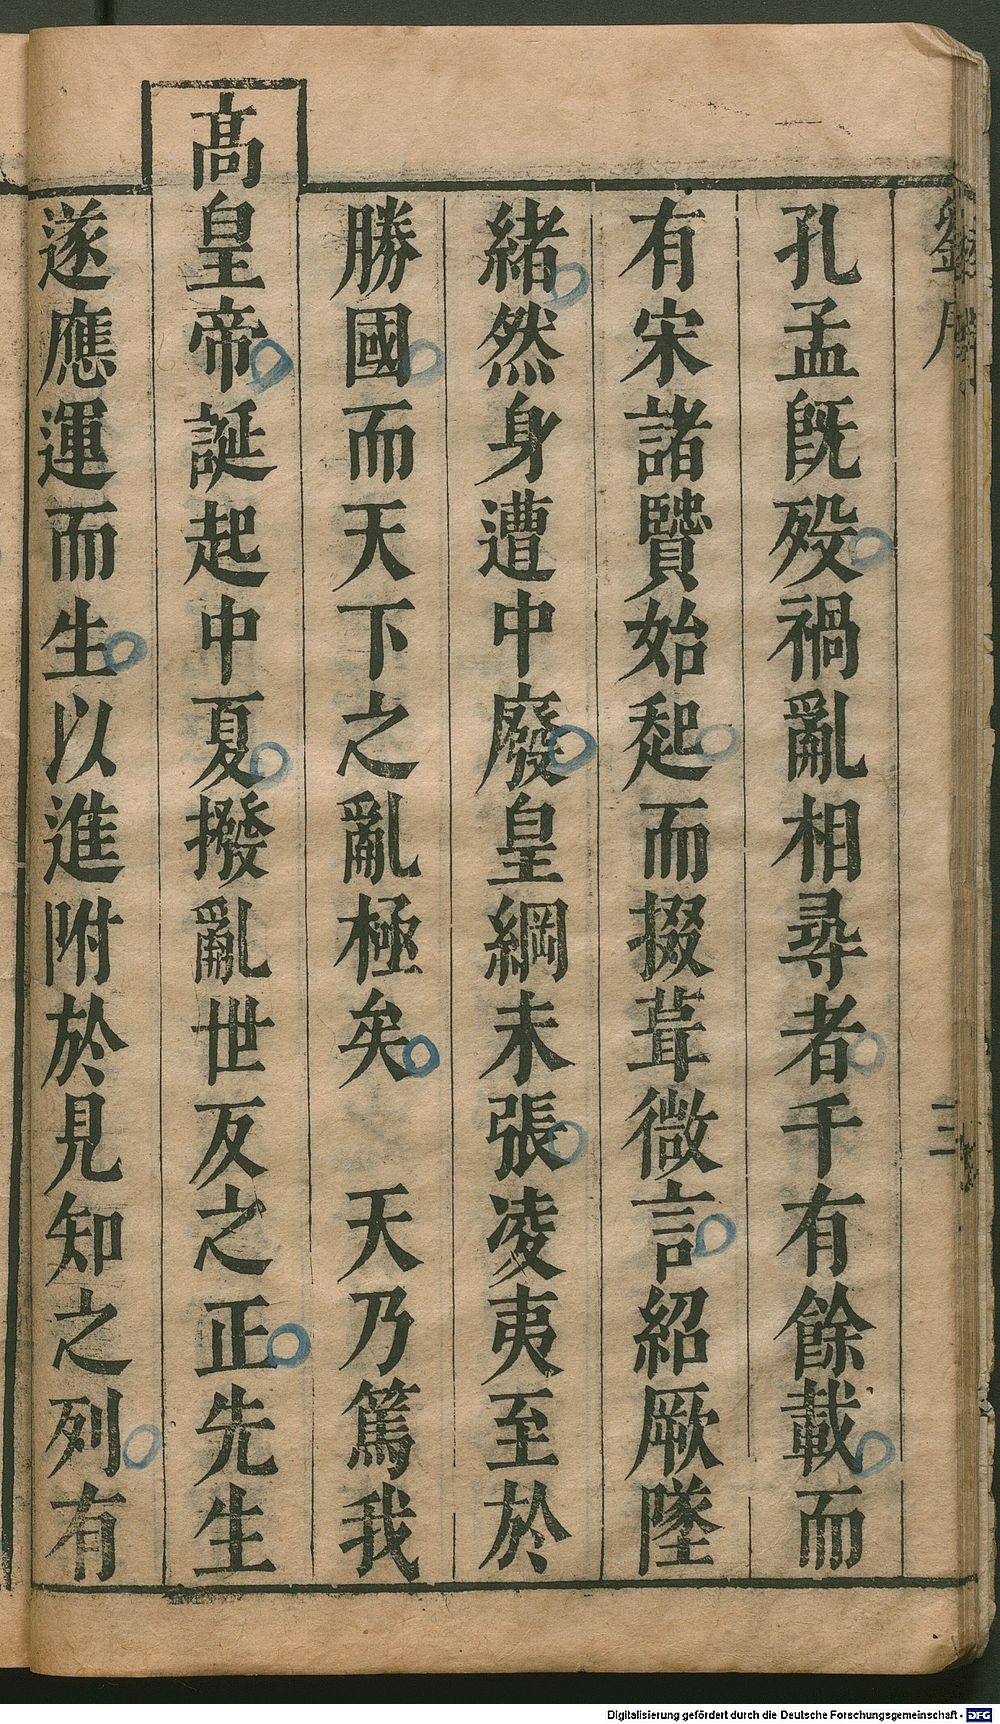 孔孟旣歿禍亂相尋者千有餘載而
有宋諸賢始起而掇葺微言紹厥墜
緒然身遭中廢皇綱未張凌夷至於
勝國而天下之亂極矣　天乃篤我
高皇帝誕起中夏撥亂世反之正先生
遂應運而生以進附於見知之列有
三
Digitalisierung gefördert durch die Deutsche Forschungsgemeinschaft - DFG